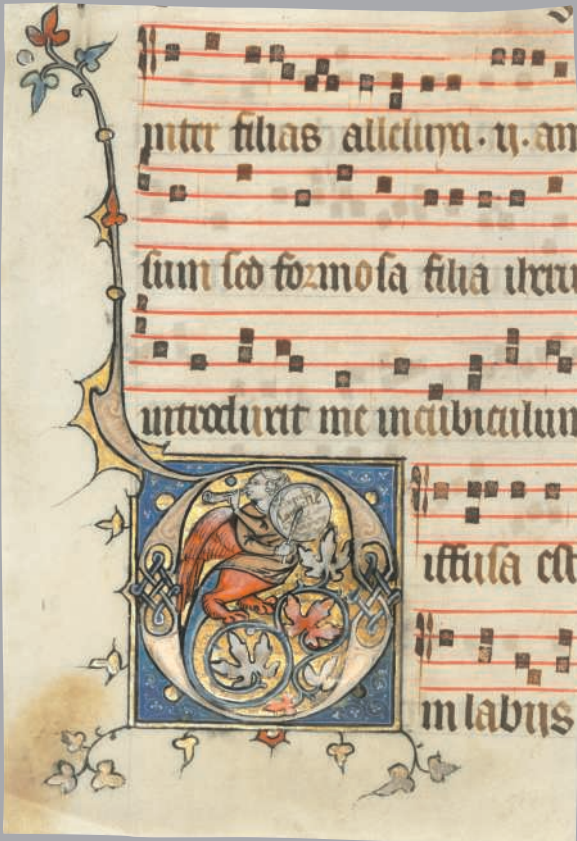 inter filias alleluya. ij. an
sum sed formosa filia iheru
introduxit me in cubiculum
Diffusa est
in labiis